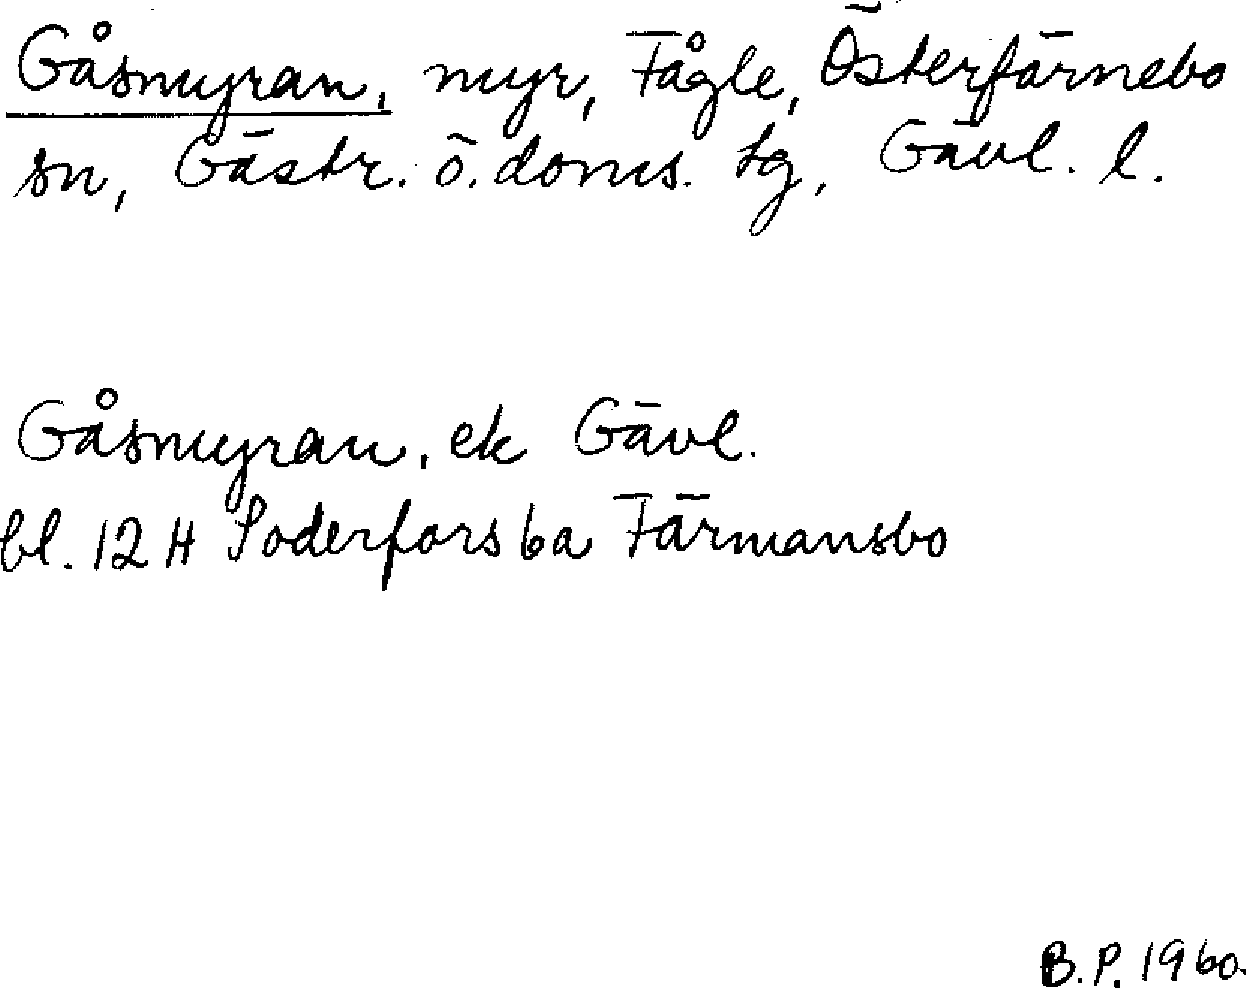 Gåsmyran, myr, Fågle, Österfärnebo
sn, Gästr. ö. doms. tg, Gävl. l.
Gåsmyran, ek Gävl.
bl. 12 H Soderfors 6a Färmansbo
B.P. 1960.